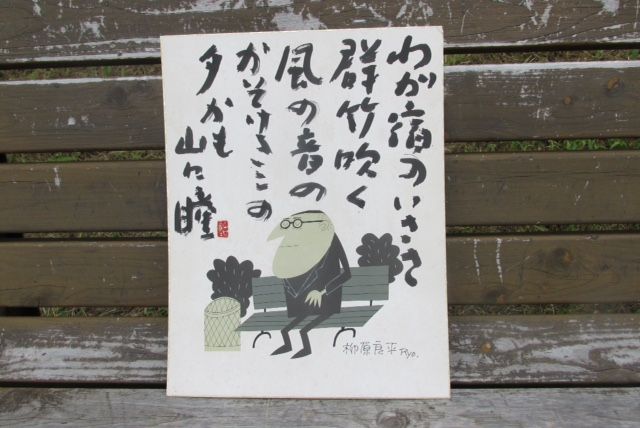 わが宿のいささ
群竹吹く
風の音の
かそけきこの
夕かも
山口瞳
柳原良平 Ryo.